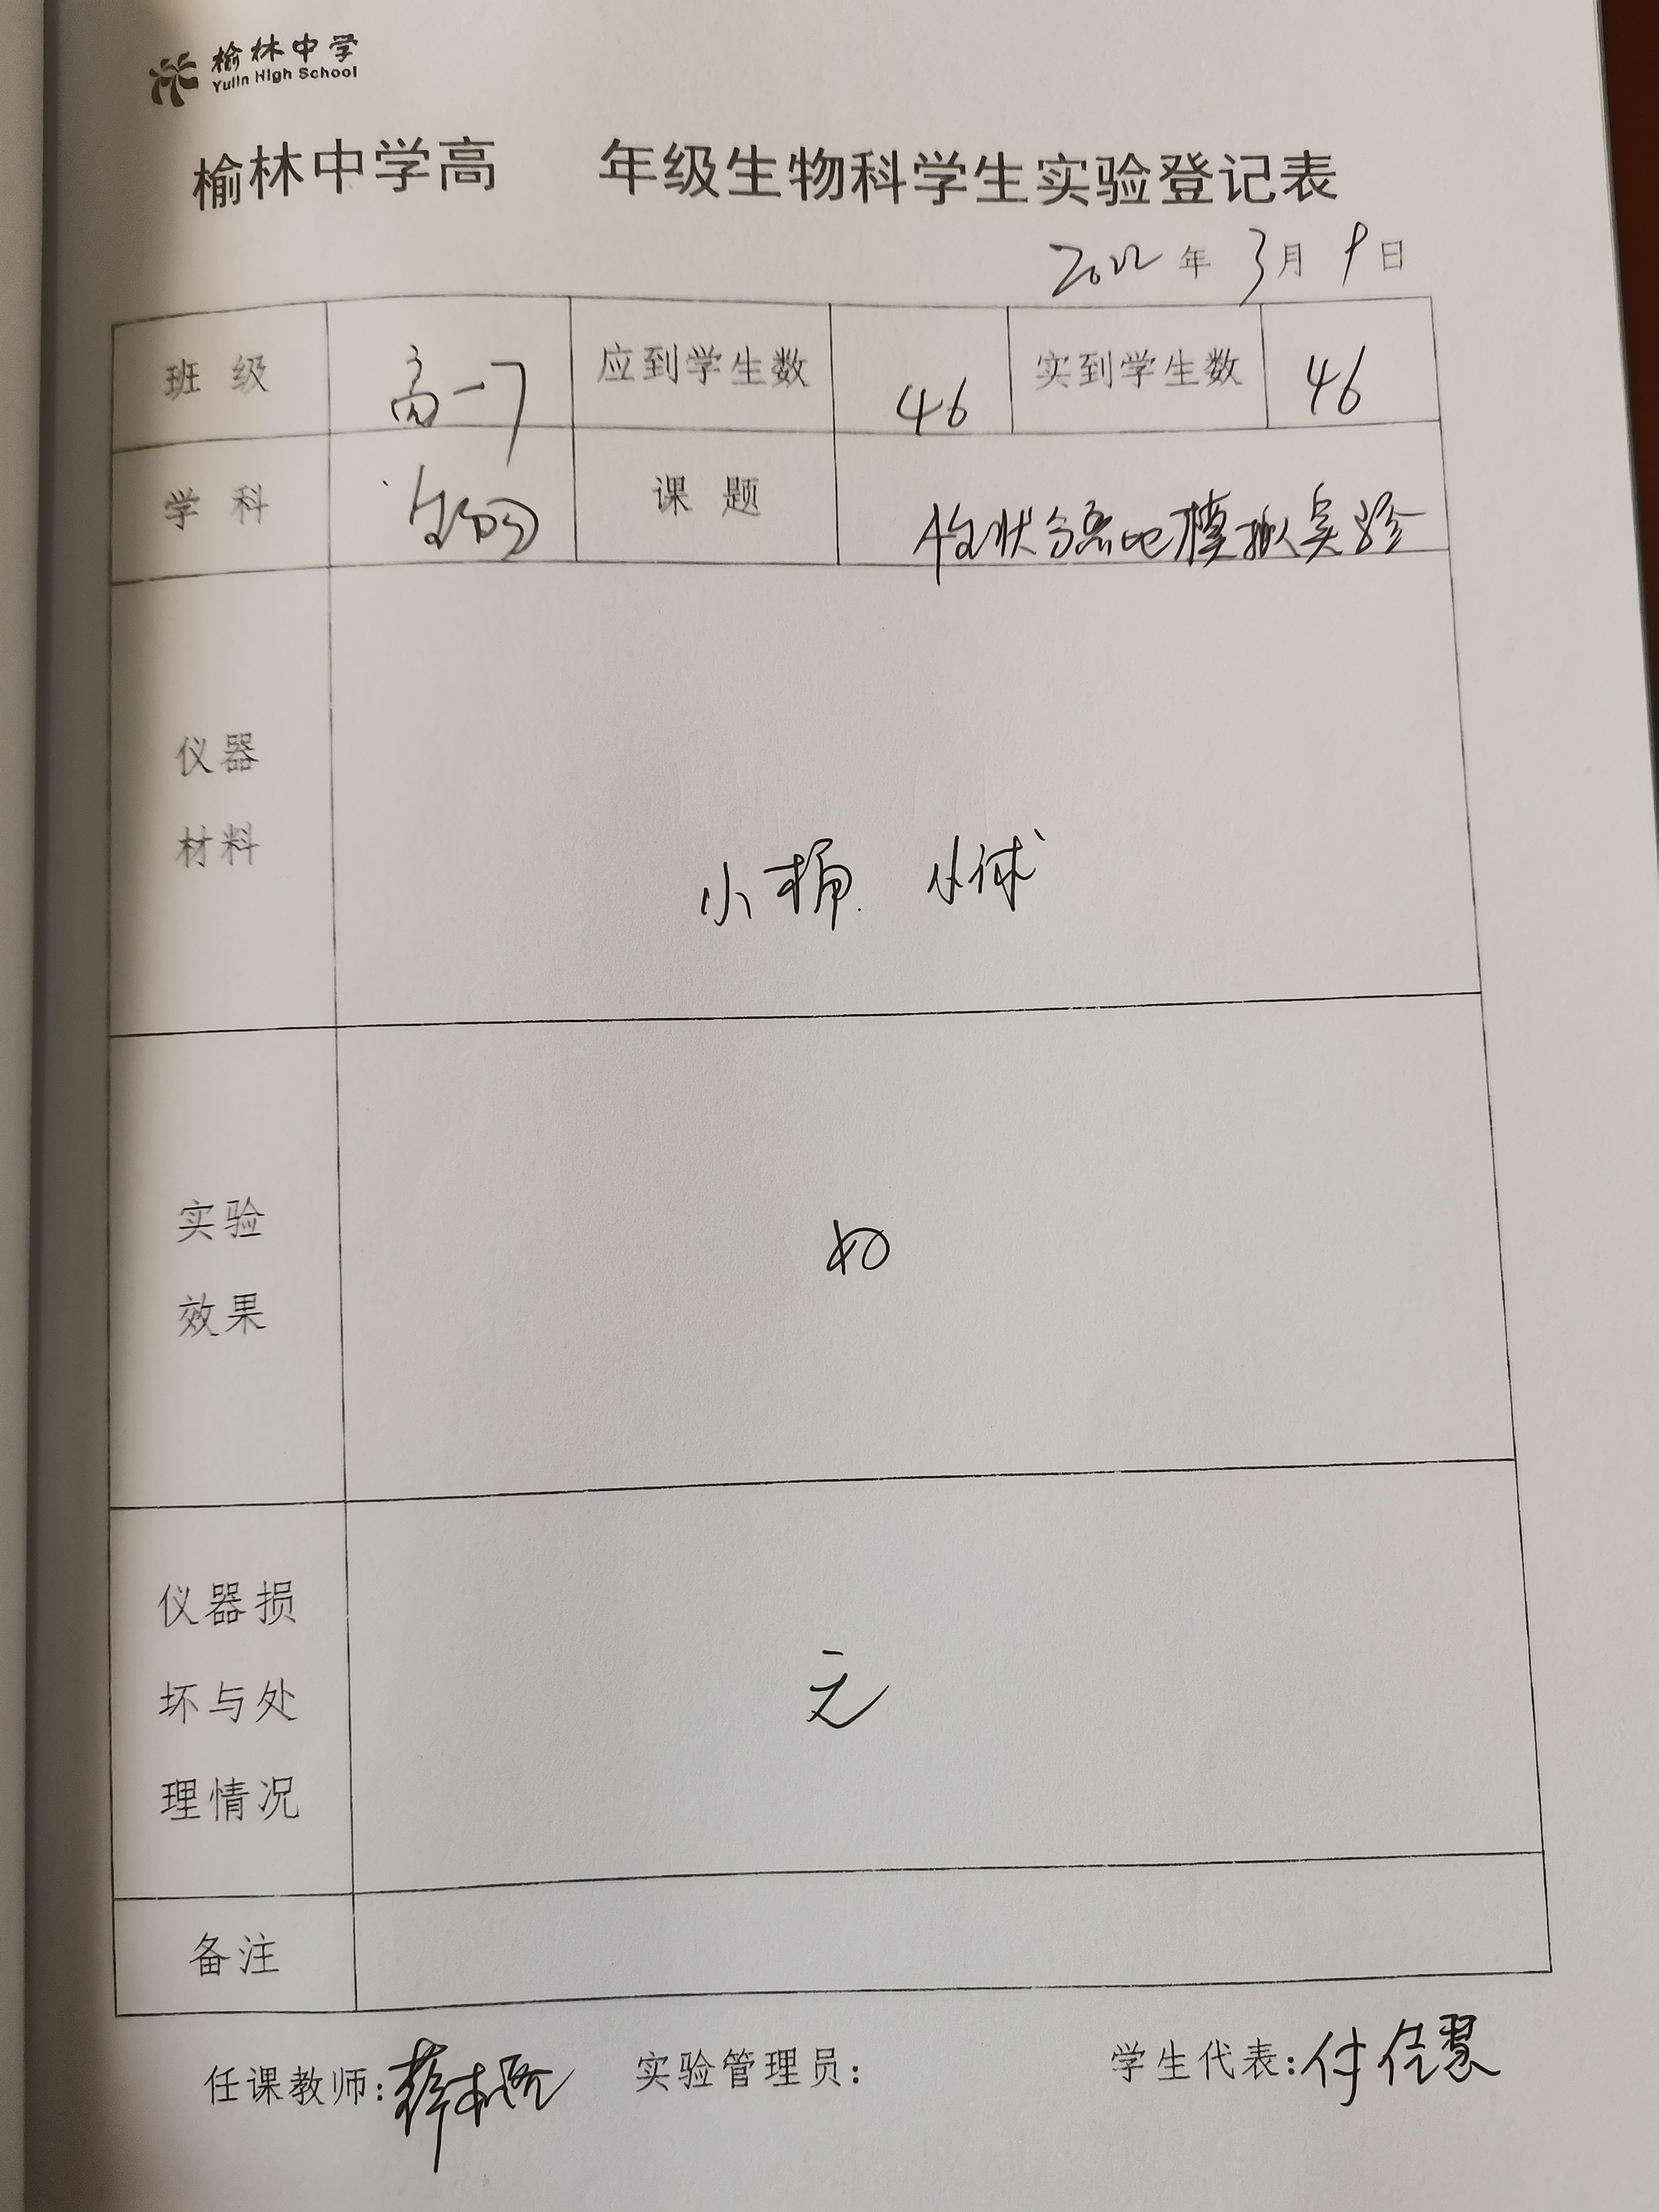 榆林中学
Yulin High School
榆林中学高 年级生物科学生实验登记表
2022年3月9日
班级 高一7 应到学生数 46 实到学生数 46
学科 生物 课题 性状分离比模拟实验
仪器
材料
小桶 小球
实验
效果
好
仪器损
坏与处
理情况
无
备注
任课教师: 实验管理员: 学生代表:付